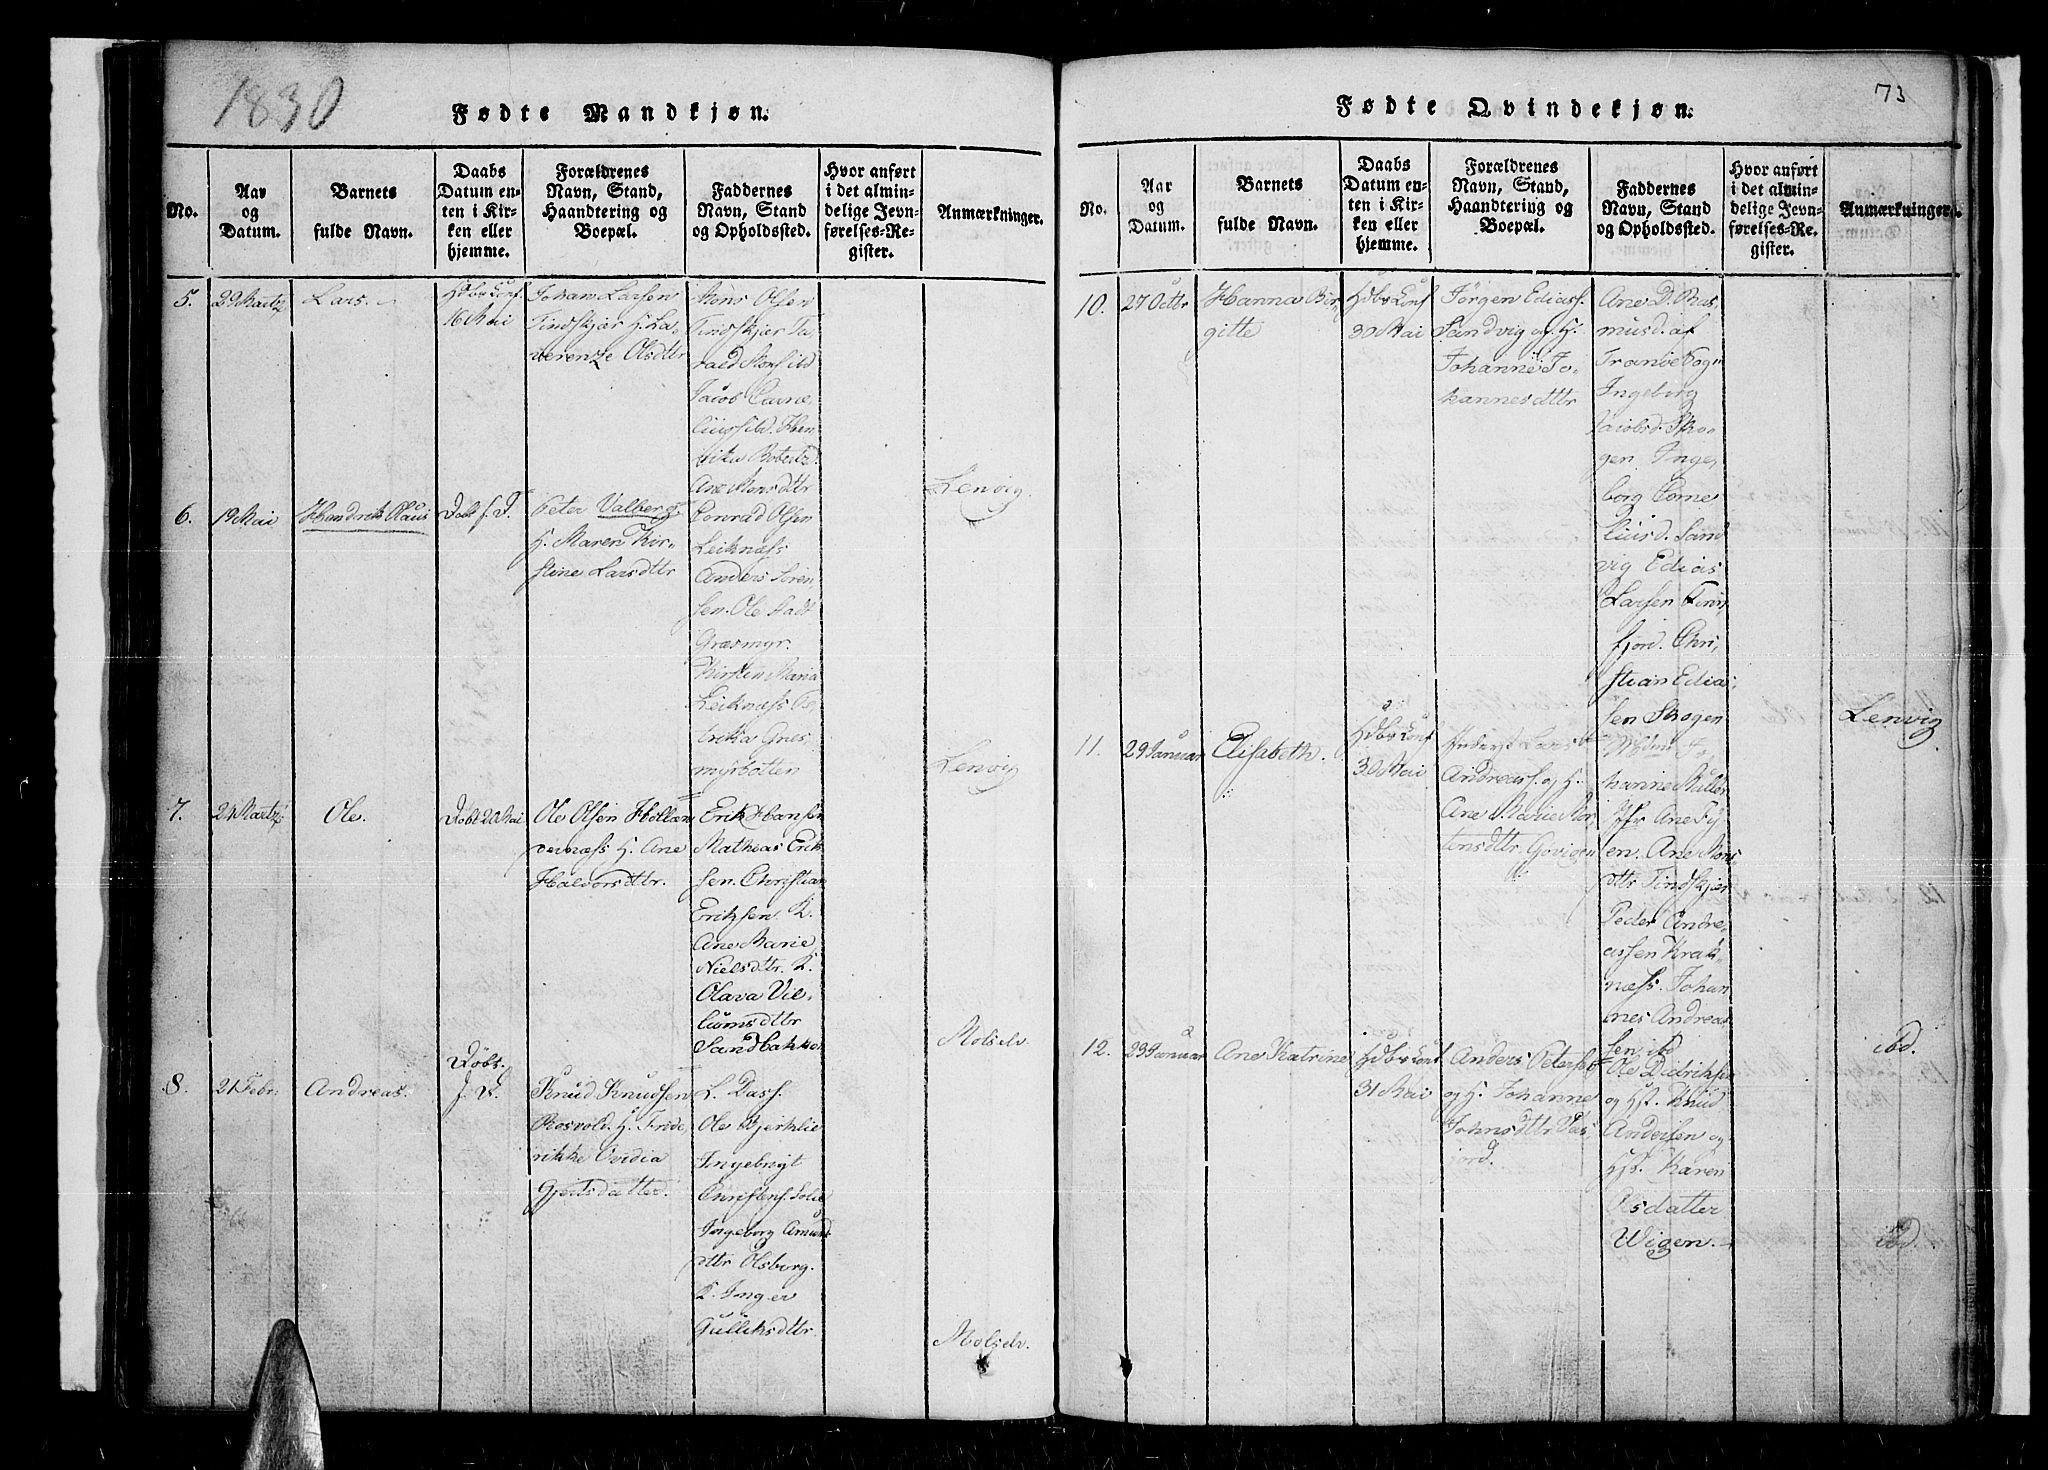 1830
Fødte Mandkjøn.
No.
Aar
og
Datum.
Barnets
fulde Navn.
Daabs
Datum en-
ten i Kir-
ken eller
hjemme.
Forældrenes
Navn, Stand,
Haandtering og
Boepæl.
Faddernes
Navn, Stand
og Opholdssted.
Hvor anført
i det almin-
delige Jevn-
førelses-Re-
gister.
Anmærkninger.
5.
29 Martz
Lars.
Hdb. Conf
16 Mai
Johan Larsen
Tindskjær H. La-
verenze Olsdttr
Mons Olsen
Tindskjær
Jacob Corne,
Ane Monsdttr
Lenvig
6.
19 Mai
Hendrik Olaus
Døbt s. D.
Peter Valberg
H. Maren Kir-
stine Larsdttr
Conrad Olsen
Leiknæss
Anders Søren
sen. Ole
Græsmyr.
Kirsten Maria
Leiknæss
Græs,
myrbotten
Lenvig
7.
24 Martz
Ole.
Døbt 20 Mai
Ole Olsen Hollæn
dernæss H. Ane
Halvorsdttr.
Erik Hansen
Mathias Erik
sen. Christian
Eriksen. K.
Ane Marie
Nielsdttr. K.
Olava Vil-
lumsdttr
Sandbakken
Molselv
8.
21 Febr.
Andreas.
Døbt.
s. D.
Knud Knudsen
Rosvold. H. Fride,
rikke Ovidia
Gjertsdatter.
L. Dass.
Ole Bjerklie
Ingebrigt
Christens.
Ingeborg Amund
dttr Olsborg.
K. Inger
Gulliksdttr
Molselv.
73
Fødte Qvindekjøn.
No.
Aar
og
Datum.
Barnets
fulde Navn.
Daabs
Datum en-
ten i Kir-
ken eller
hjemme.
Forældrenes
Navn, Stand,
Haandtering og
Boepæl.
Faddernes
Navn, Stand
og Opholdssted.
Hvor anført
i det almin-
delige Jevn-
førelses-Re-
gister.
Anmærkninger.
10.
27 Octbr
Hanna Bir,
gitte
Hdb. Conf
30 Mai
Jørgen Ediass.
Sandvig og H.
Johanne Jo-
hannesdttr
Ane D. Ras
musd. af
Tranøe Sogn
Ingeborg
Jacobsd. Sko-
gen. Inge,
borg Corne
liusd. Sand
vig Edias
Larsen Finn,
fjord. Chri,
stian Edia,
sen Skogen
Lenvig
11.
29 Januar
Elisabeth.
Hdb. Conf
30 Mai
Andreass. og H.
Ane Marie Mor,
tensdttr. Govigen
Madm Jo,
hanne Müller
Jfr Ane Fy
en. Ane Mons
dttr Tindskjær
Peder Andre-
assen Krak-
næss. Johan
nes Andreas
sen ibd
ibd.
12.
23 Januar
Ane Katrine
Hdb. Conf
31 Mai
Anders Peters.
og H. Johanne
Johnsdttr
jord.
Ole Didriksen
og Hst. Knud
Andersen og
Hst. Karen
Olsdatter
Wigen.
ibd.